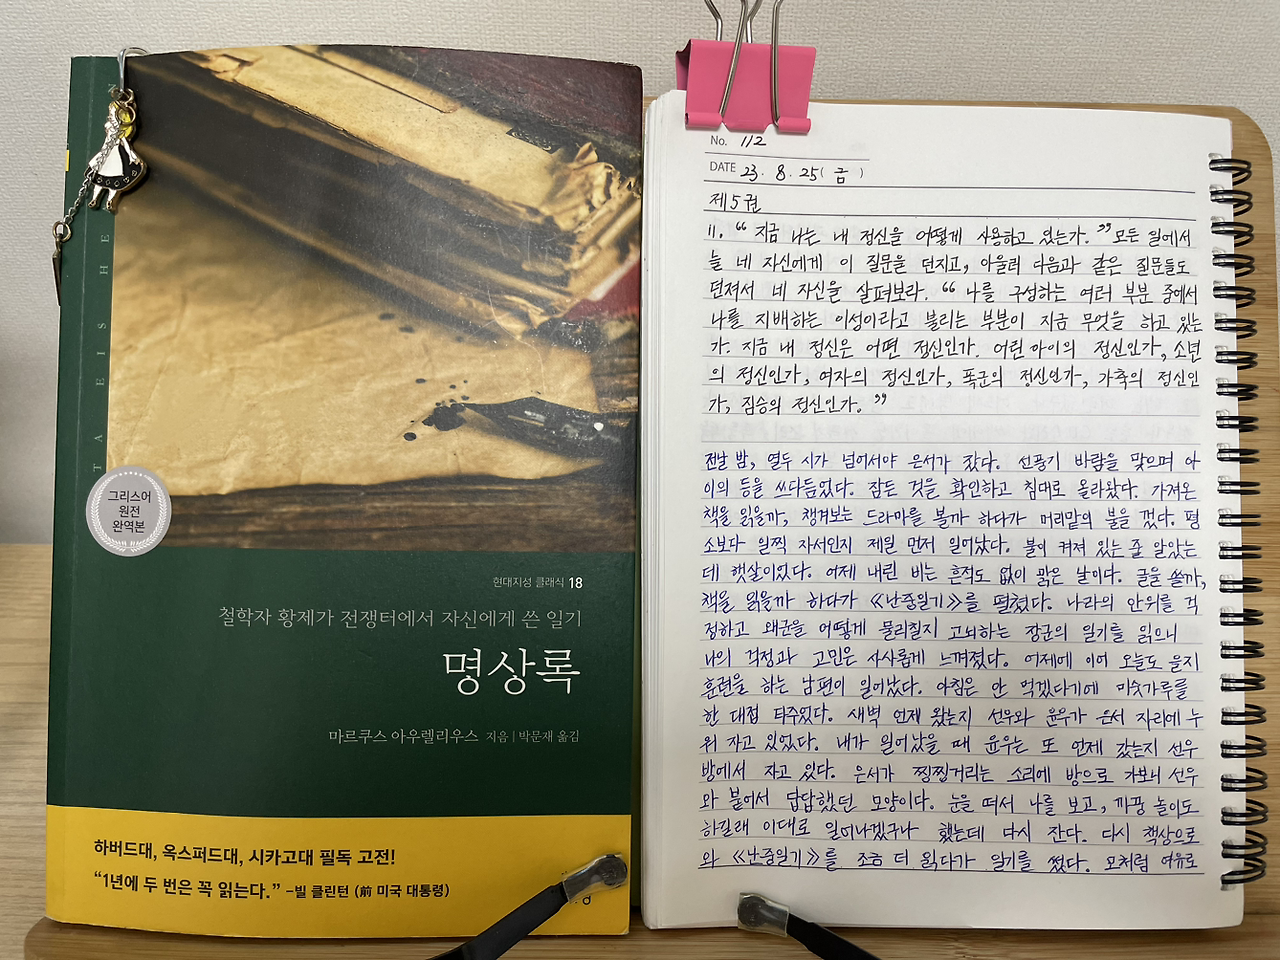 그리스어
원전
완역본
현대지성 클래식 18
철학자 황제가 전쟁터에서 자신에게 쓴 일기
명상록
마르쿠스 아우렐리우스 지음 | 박문재 옮김
하버드대, 옥스퍼드대, 시카고대 필독 고전!
“1년에 두 번은 꼭 읽는다.” –빌 클린턴 (前 미국 대통령)
No. 112
DATE 23. 8. 25( 금 )
제5권
11. “ 지금 나는 내 정신을 어떻게 사용하고 있는가. ” 모든 일에서
늘 네 자신에게 이 질문을 던지고, 아울러 다음과 같은 질문들도
던져서 네 자신을 살펴보라. “ 나를 구성하는 여러 부분 중에서
나를 지배하는 이성이라고 불리는 부분이 지금 무엇을 하고 있는
가. 지금 내 정신은 어떤 정신인가. 어린 아이의 정신인가, 소년
의 정신인가, 여자의 정신인가, 폭군의 정신인가, 가축의 정신인
가, 짐승의 정신인가. ”
전날 밤, 열두 시가 넘어서야 은서가 잤다. 선풍기 바람을 맞으며 아
이의 등을 쓰다듬었다. 잠든 것을 확인하고 침대로 올라왔다. 가져온
책을 읽을까, 챙겨보는 드라마를 볼까 하다가 머리맡의 불을 껐다. 평
소보다 일찍 자서인지 제일 먼저 일어났다. 불이 켜져 있는 줄 알았는
데 햇살이었다. 어제 내린 비는 흔적도 없이 맑은 날이다. 글을 쓸까,
책을 읽을까 하다가 《난중일기》를 펼쳤다. 나라의 안위를 걱
정하고 왜군을 어떻게 물리칠지 고뇌하는 장군의 일기를 읽으니
나의 걱정과 고민은 사사롭게 느껴졌다. 어제에 이어 오늘도 을지
훈련을 하는 남편이 일어났다. 아침은 안 먹겠다기에 미숫가루를
한 대접 타주었다. 새벽 언제 왔는지 선우와 윤우가 은서 자리에 누
워 자고 있었다. 내가 일어났을 때 윤우는 또 언제 갔는지 선우
방에서 자고 있다. 은서가 찡찡거리는 소리에 방으로 가보니 선우
와 붙어서 답답했던 모양이다. 눈을 떠서 나를 보고, 까꿍 놀이도
하길래 이대로 일어나겠구나 했는데 다시 잔다. 다시 책상으로
와 《난중일기》를 조금 더 읽다가 일기를 썼다. 모처럼 여유로